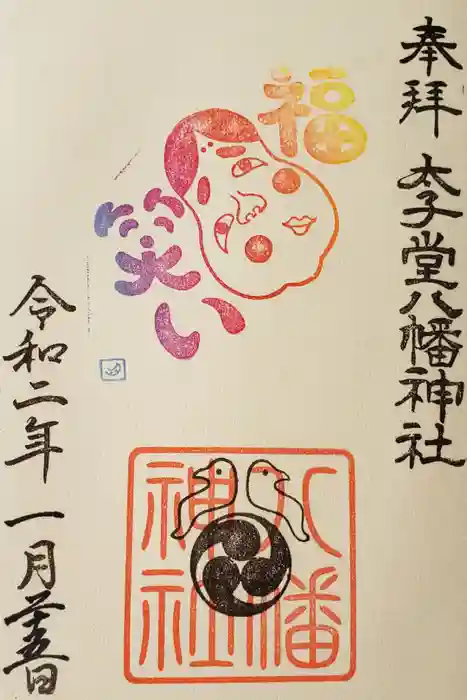 奉拝 太子堂八幡神社
福
笑い
八幡
神社
令和二年 一月廿五日